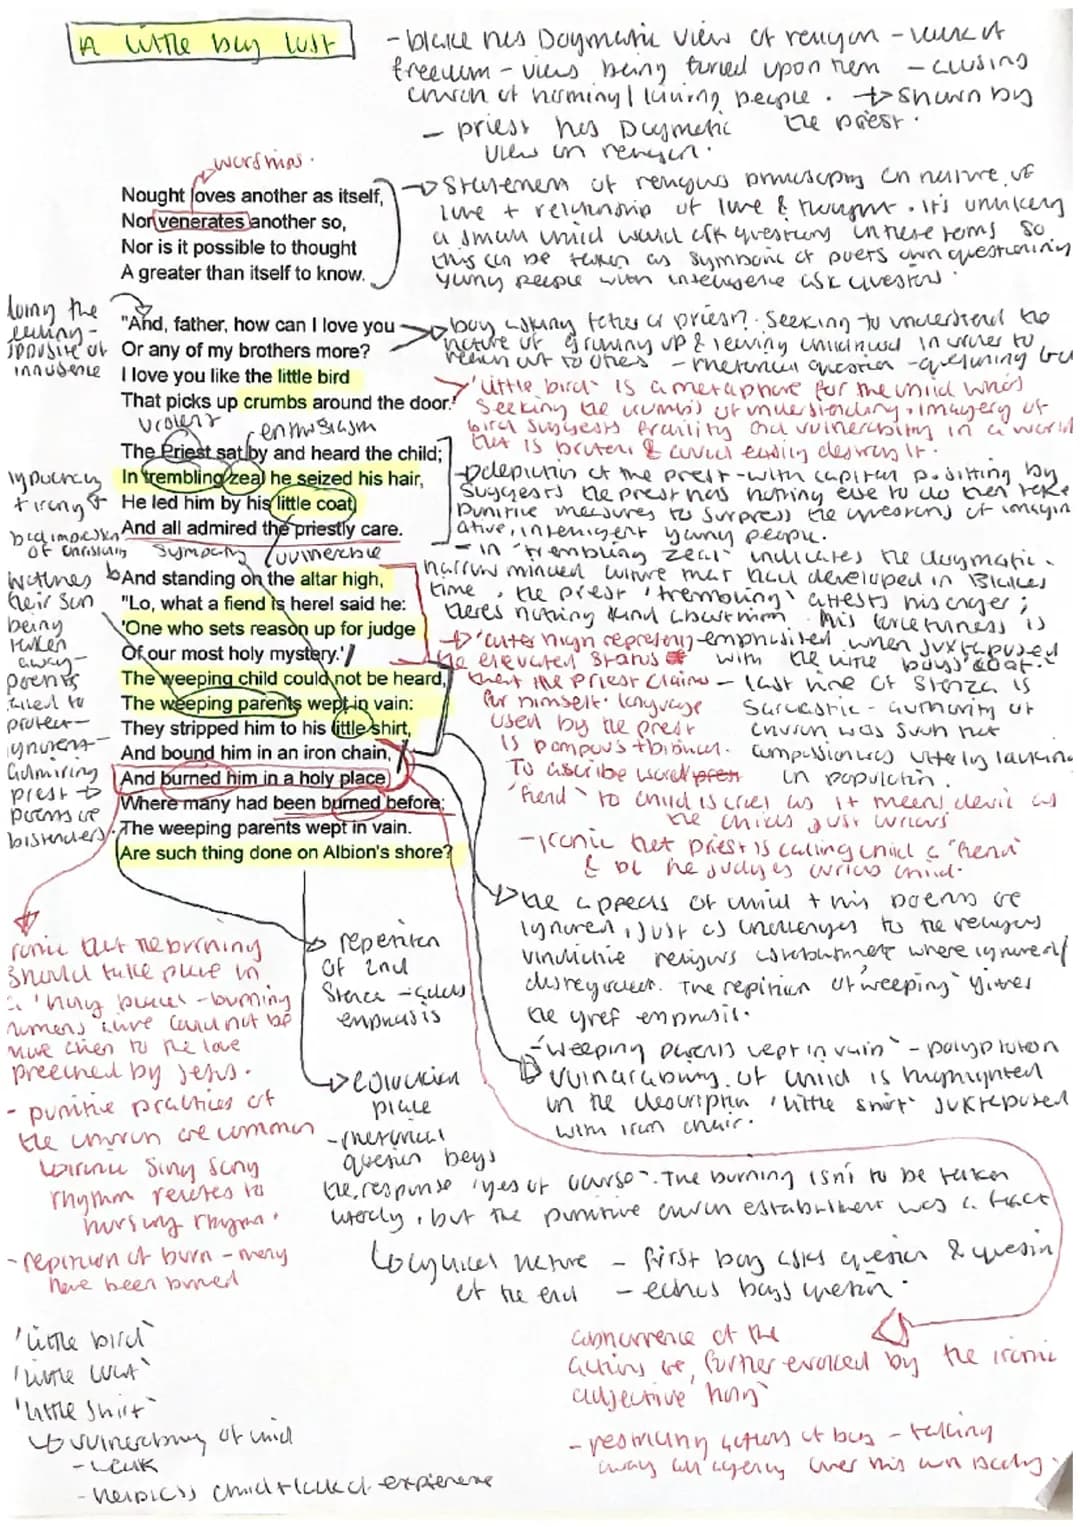 A little boy lost
- blake hes Dogmatic view of religion - lack of
freedom - views being forced upon them - causing
church of harming / luring people. → shown by
the priest.
- priest hes Dogmetic
view on religion.
worships.
Nought loves another as itself,
Nor venerates another so,
Nor is it possible to thought
A greater than itself to know.
→ Statement of religous philosophy on nature of
love + relationship of love & thought. It's unlikely
a small child would ask questions in these terms so
this can be taken as symbolic of poets own questioning
young people with intelligence ask questions.
"And, father, how can I love you
Or any of my brothers more?
I love you like the little bird
That picks up crumbs around the door.'
losing the
opposite of
innocence
boy asking father or priest? Seeking to understand the
nature of growing up & leaving childhood in order to
reach out to others - rhetorical question - questioning
'little bird' is a metaphore for the child who's
seeking the crumbs of understanding. imagery of
bird suggests fraility and vulnerability in a world
that is brutal & could easily destroy it.
violent
enthusiasm
The Priest sat by and heard the child;
In trembling zeal he seized his hair,
He led him by his little coat,
And all admired the priestly care.
hypocricy
+ irony of
bad impression
of christianity
sympathy
vulnerable
→ depiction of the prest - with capital p. sitting by
suggests the prest has nothing else to do then take
punitive measures to surpress the questions of imagin
ative, intelligent young people.
- in 'trembling zeal' indicates the dogmatic.
narrow minded culture that had developed in Blakes
time, the prest 'trembling' attests his anger;
theres nothing kind about him. This forcefulness is
emphasised when juxtaposed
with the little boys' coat.
And standing on the altar high,
"Lo, what a fiend is here! said he:
'One who sets reason up for judge
Of our most holy mystery.'
The weeping child could not be heard,
The weeping parents wept in vain:
They stripped him to his little shirt,
And bound him in an iron chain,
And burned him in a holy place
Where many had been burned before;
The weeping parents wept in vain.
Are such thing done on Albion's shore?
watches
their son
being
taken
away -
parents
failed to
protect -
ignorent -
admiring
prest →
parents are
bistanders
→ 'alter high represeng
the elevated status
that the priest claims
for himself. language
used by the prest
is pompous + biblical.
To ascribe word
'fiend' to child is cruel as it means devil as
the childs just curious
- last line of stanza is
sarcastic - authority of
church was such that
compassion was utterly lacking
in population.
- ironic that priest is calling child a 'fiend'
& bc he judges curious child.
→ the appeals of child + his parents are
ignored, just as challenges to the religous
vindictive religous establishment where ignored /
disregarded. The repition of 'weeping' gives
the gref emphasis.
- 'weeping parents wept in vain' - polyptoton
→ vulnarability of child is highlighted
in the description 'little shirt' juxtaposed
with iron chair.
ironic that the burning
should take place in
a 'holy place' - burning
humens alive could not be
more alien to the love
preeched by Jesus.
- punitive practices of
the church are common
ironic sing song
rhythm relates to
nursery rhyme.
- repition of burn - many
have been burned
→ repetition
of 2nd
stanza - adds
emphasis
place
- rhetorical
question begs
the response 'yes of course'. The burning isn't to be taken
literly, but the punitive church establishment was a fact
cyclical neture - first boy asks question & question
at the end - echos boys question.
'little bird'
'little coat'
'little shirt'
↳ vulnerability of child
- weak
- helpless child + lack of experience
of the
actions are further evoked by the ironic
adjective 'holy'
- restricting actions of boy - taking
away all agency over his own body.